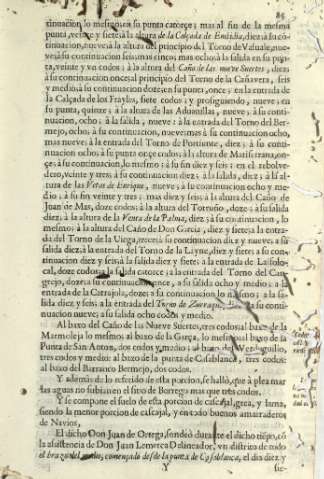 85
tinuacion lo mesmo; en su punta catorçe; mas al fin de la mesma
punta, veinte y siete; à la altura de la Calçada de Emidia, diez; à su cõ-
tinuacion, nueve; à la altura del principio del Torno de Valuale, nue-
ve; à su continuacion seis; mas cinco; mas ocho; à la salida en su pun-
ta, veinte y va codos: à la altura del Caño de las nueve Suertes, diez;
à su continuacion once; al principio del Torno de la Cañavera, seis
y medio; à su continuacion doze, en su punta, once; en la entrada de
la Calçada de los Frayles, siete codos; y prosiguiendo, nueve; en
su punta, quinze; à la altura de las Aduanillas, nueve; à su conti-
nuacion, ocho; à la salida, nueve: à la entrada del Torno del Ber-
mejo, ocho; à su continuacion, nueve; mas à su continuacion ocho,
mas nueve; à la entrada del Torno de Portiente, diez; à su conti-
nuacion ocho; à su punta onçe codos; à la altura de on-
çe; à su continuacion, lo mesmo; à su fin diez y seis; en el rebolve-
dero, veinte y tres; à su continuacion diez; à la salida, diez; à la al-
tura de las Vetas de Enrique, nueve; à su continuacion ocho y me-
dio; à su fin veinte y tres; mas diez y seis; à la altura del Caño de
Juan de Mas, doze codos; à la altura del Tortuño, doze; à su salida
diez; à la altura de la Venta de la Palma, diez; à su continuacion, lo
mesmo; à la altura del Caño de Don Garcia, diez y siete; à la entra-
da del Torno de la Vrraca, trece; à su continuacion diez y nueve; à su
salida diez; à la entrada del Torno de la Layne, diez y siete; à su con-
tinuacion diez y seis; à la salida diez y siete; à la entrada de La
cal, doze codos; à la salida catorce; à la entrada del Torno del Can-
grejo, doze; à su continuacion once, a su salida ocho y medio; à la
entrada de la Catrajola, doze; à su continuacion lo mesmo; à la sa-
lida diez y seis; à la entrada del Torno de à su conti-
nuacion nueve; à su salida ocho codos y medio.
Al baxo del Caño de las Nueve Suertes, tres codos; al baxo de la
Marmoleja lo mesmo; al baxo de la Garça, lo mesmo; al baxo de la
Punta de San Anton, dos codos y medio; al baxo de
tres codos y medio: al baxo de la punta de Casablanca, tres codos:
al baxo del Barranco Bermejo, dos codos.
Y además de lo referido de esta porcion, se halló, que à plea mar
las aguas no subian en el sito de Borrego mas que tres codos.
Y se compone el suelo de esta porcion de cascajal, grea, y lama,
siendo la menor porcion de cascajal, y en todo buenos amarraderos
de Navios.
El dicho Don Juan de Ortega, sondeò durante el dicho tiẽpo, cõ
la asistencia de Don Juan Delineador, un distrito de todo
el brazo del començado desde la punta de Casablanca, el dia diez y
Y